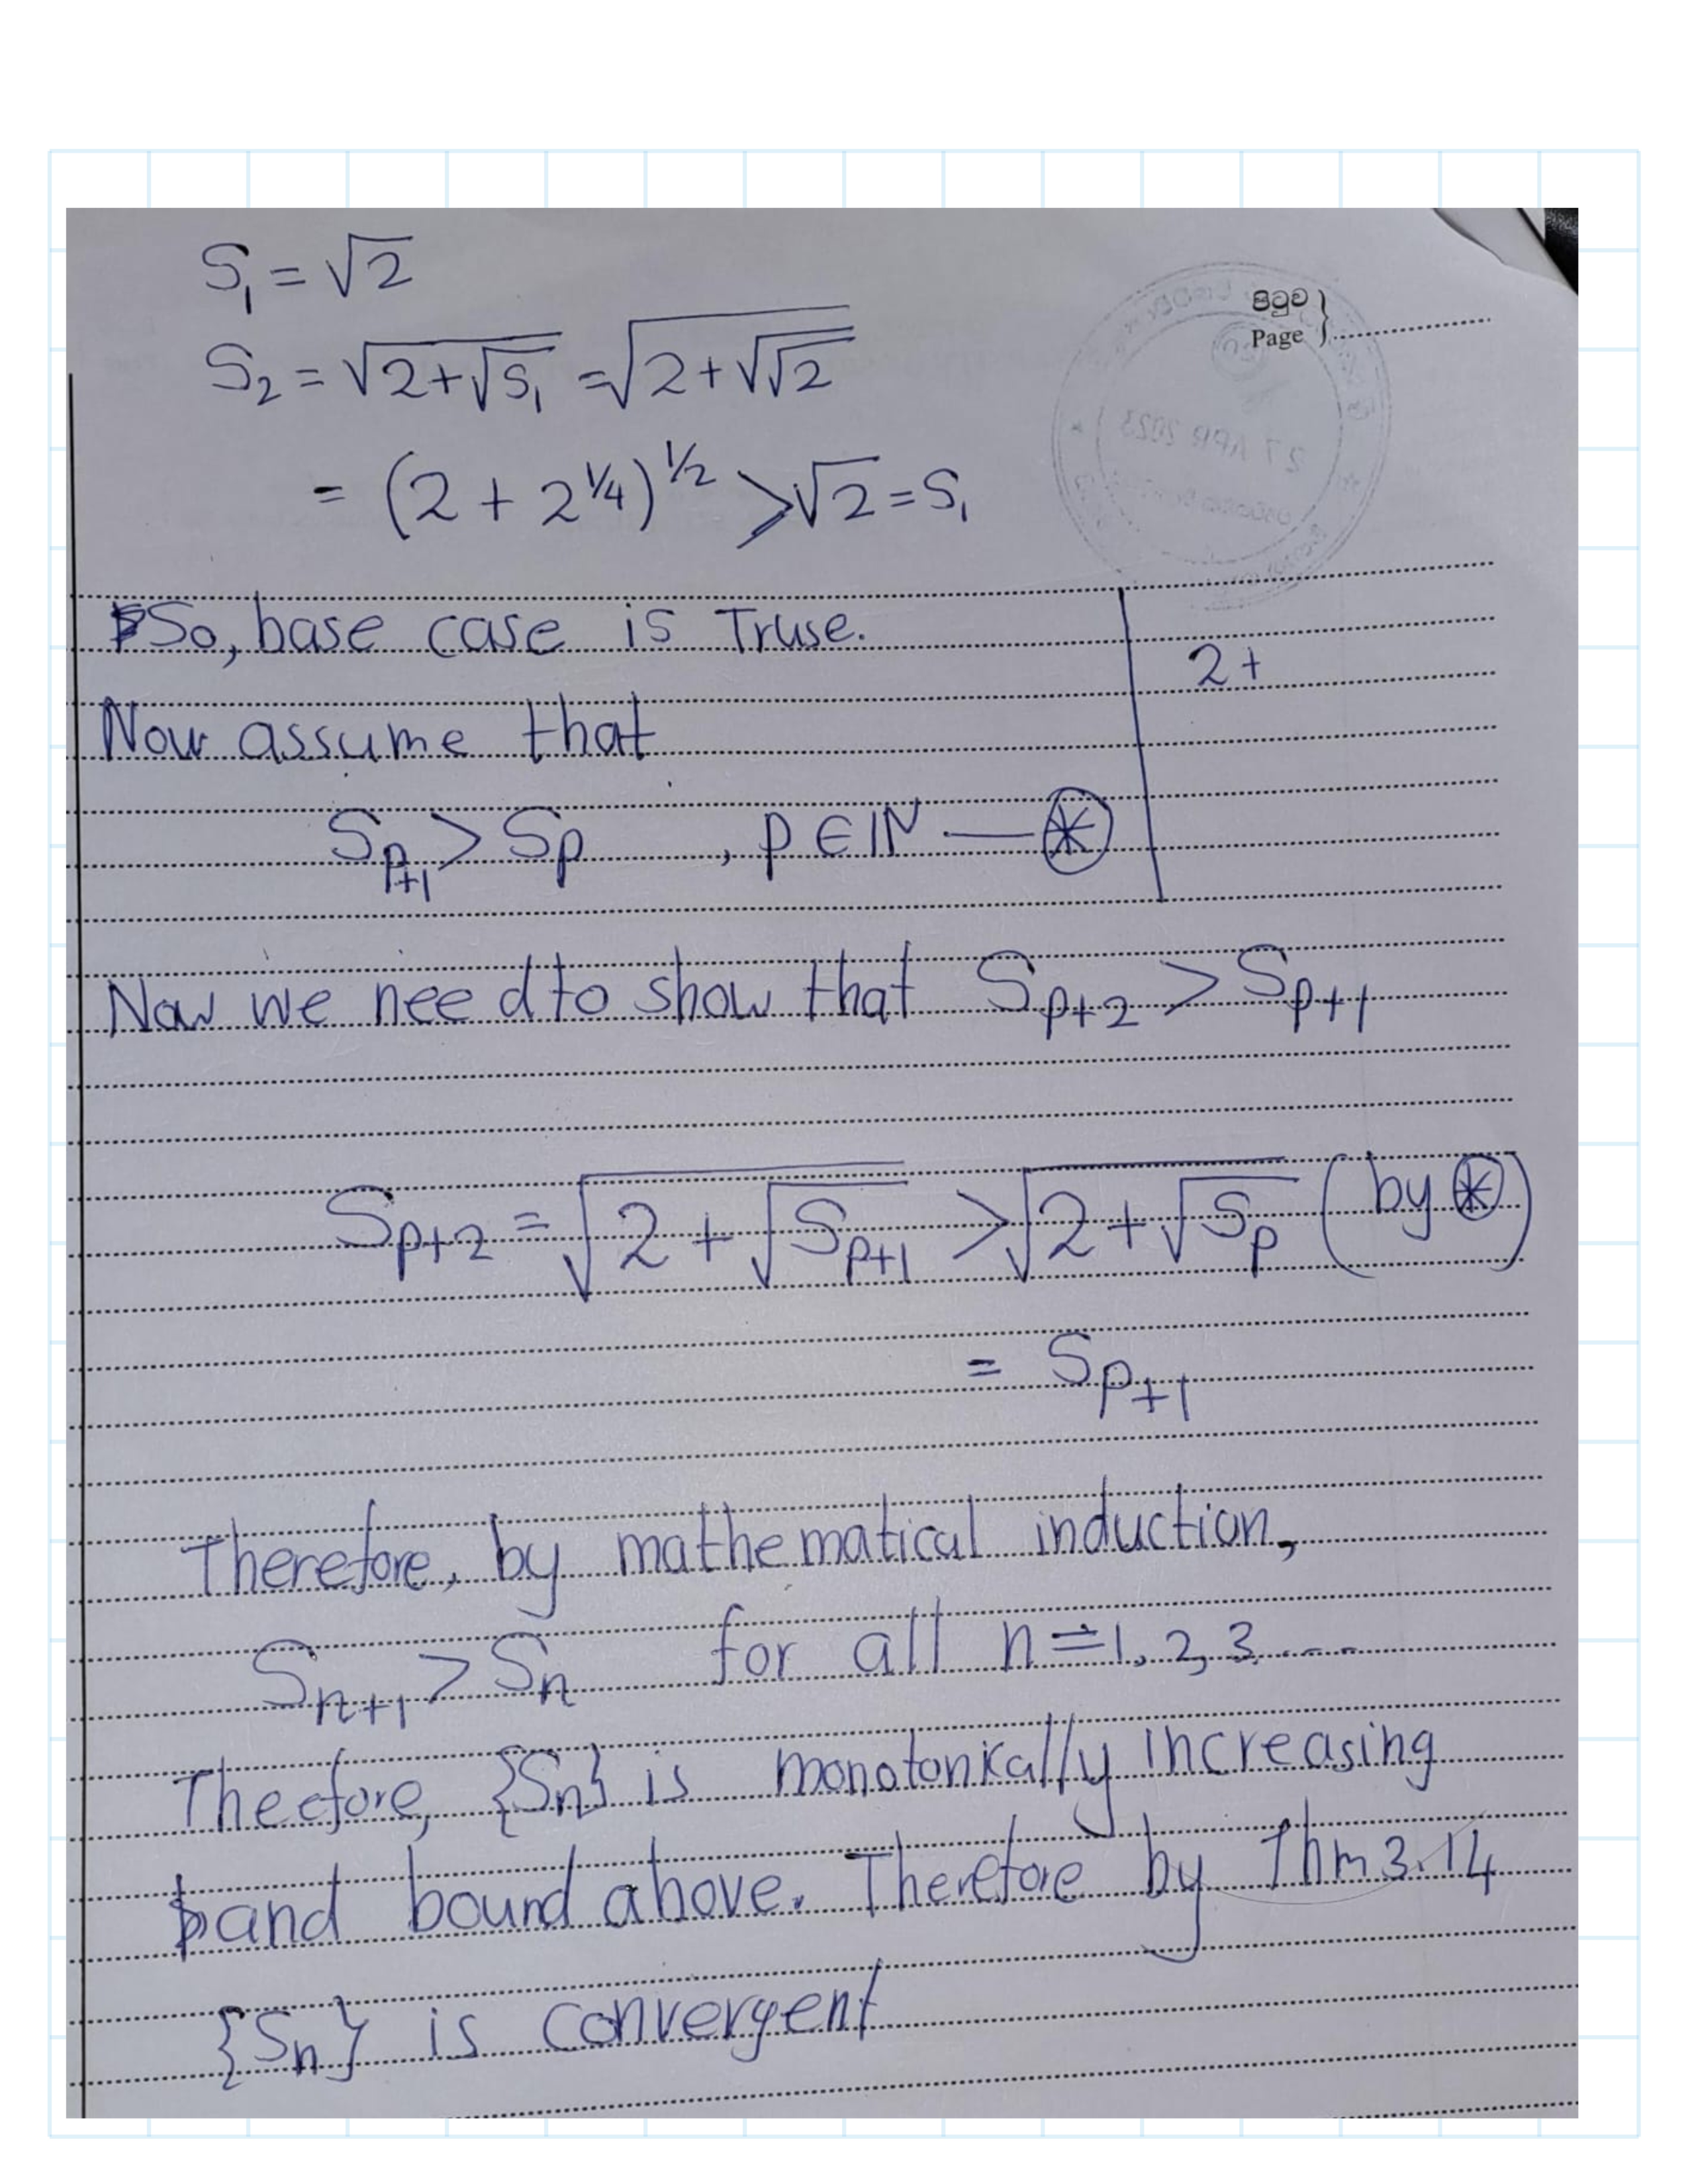 S₁ = √2
පිටුව
Page }
S₂ = √(2+√S₁) = √(2+√√2)
27 APR 2023
= (2 + 2^¼)^½ > √2 = S₁
So, base case is Truse.
2+
Now assume that
S_{p+1} > S_p , p ∈ ℕ — ⊛
Now we need to show that S_{p+2} > S_{p+1}
S_{p+2} = √(2+√S_{p+1}) > √(2+√S_p) (by ⊛)
= S_{p+1}
Therefore, by mathematical induction,
S_{n+1} > S_n for all n = 1, 2, 3, ....
Theefore, {S_n} is monotonically increasing
and bound above. Therefore by Thm 3.14
{S_n} is convergent